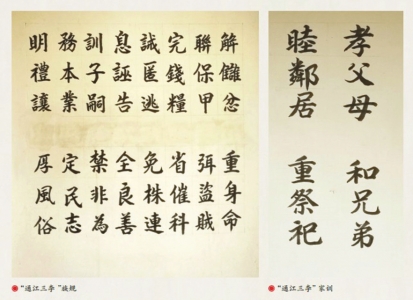 解讎忿 重身命
聯保甲 弭盜賊
完錢糧 省催科
誡匿逃 免株連
息誣告 全良善
訓子嗣 禁非為
務本業 定民志
明禮讓 厚風俗
“通江三李”族规
孝父母 和兄弟
睦鄰居 重祭祀
“通江三李”家训